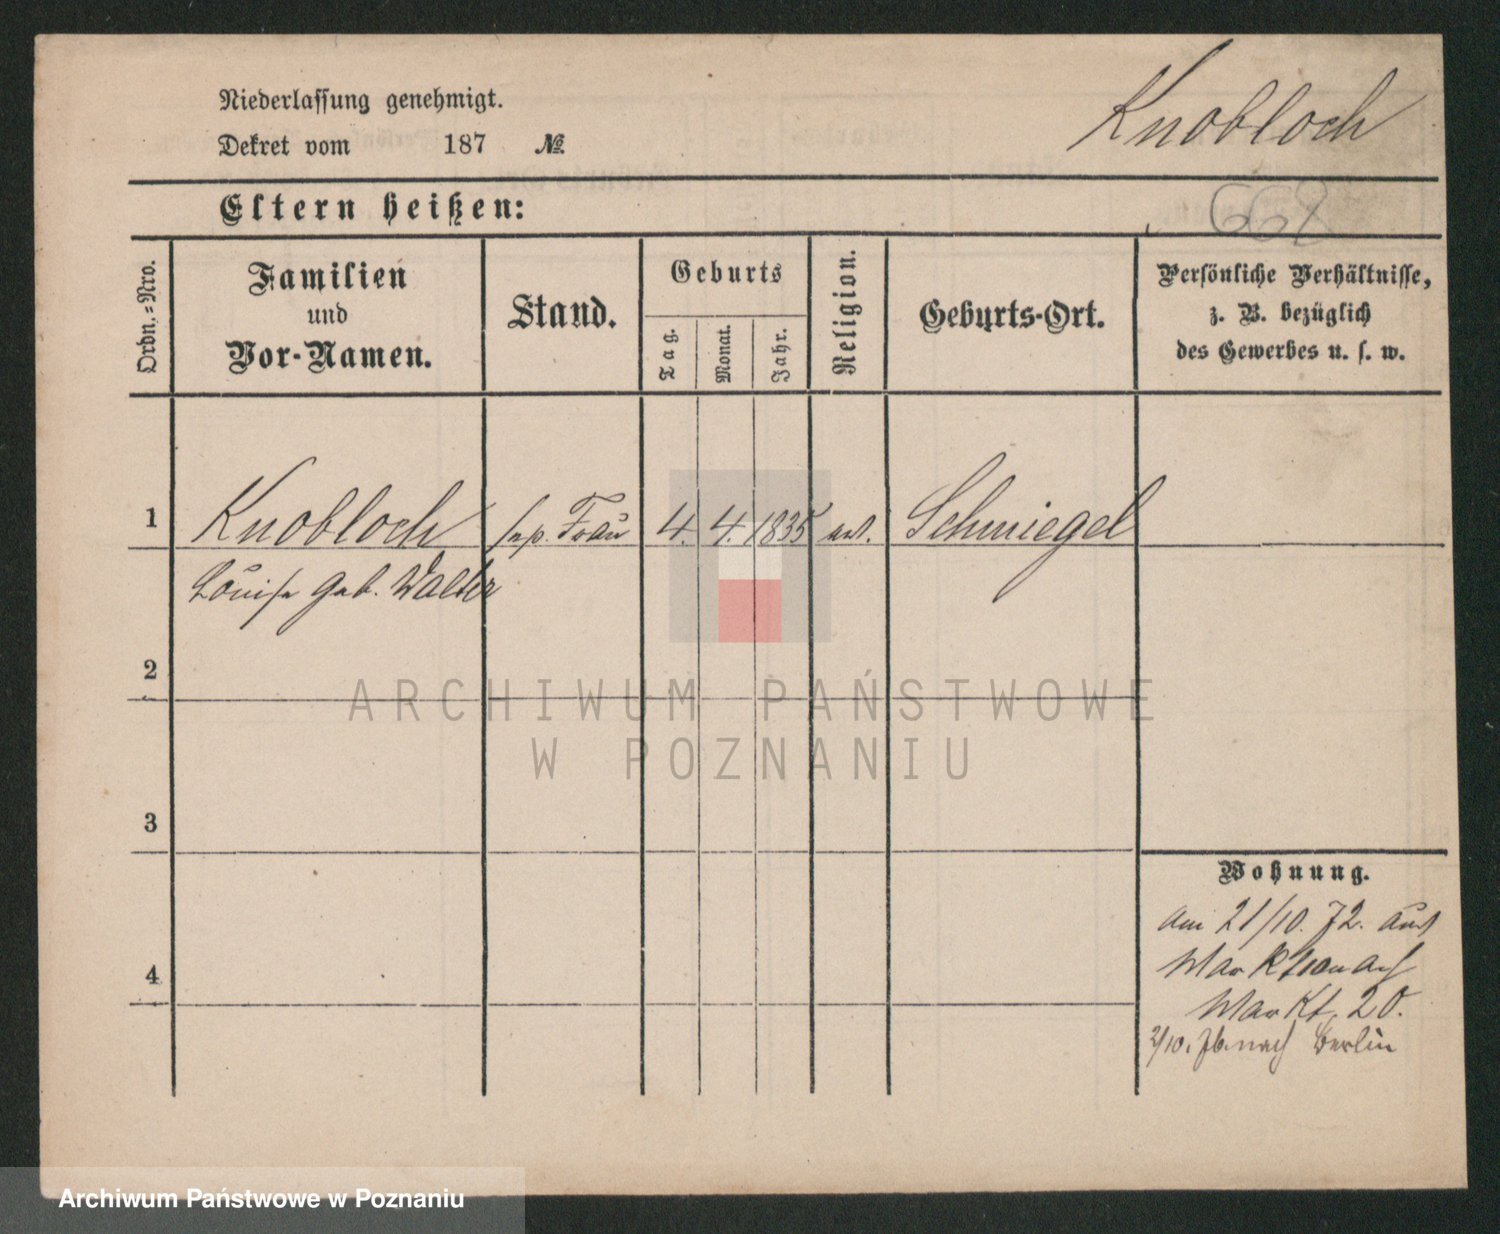 Niederlassung genehmigt.
Knobloch
Dekret vom 187 №
Eltern heißen:
Ordn.-Nro.
Familien
und
Vor-Namen.
Stand.
Geburts
Tag.
Monat.
Jahr.
Religion.
Geburts-Ort.
Persönliche Verhältnisse,
z. B. bezüglich
des Gewerbes u. s. w.
1 Knobloch sep. Frau 4. 4. 1835 Schmiegel
Louise geb. Walter
2
3
4
Wohnung.
am 21/10. 72. aus
nach
Markt 20.
2/10. 76. nach Berlin
ARCHIWUM PAŃSTWOWE
W POZNANIU
Archiwum Państwowe w Poznaniu